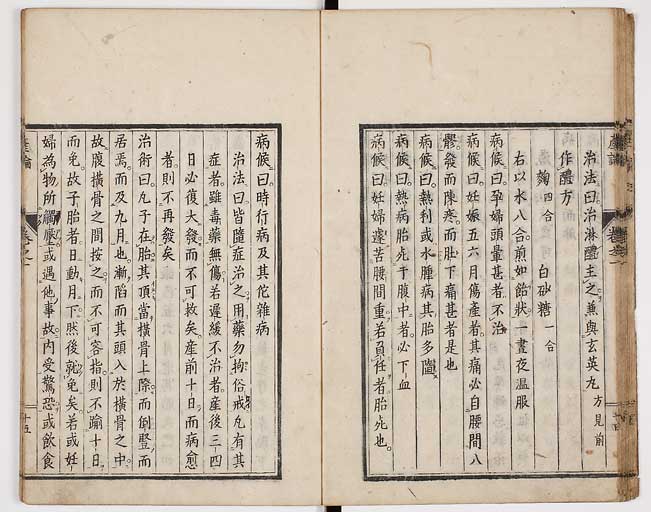 治法曰治淋醴主之兼與玄英丸方見前
作醴方
麹四合 白砂糖一合
右以水八合煎如飴狀一晝夜温服
病候曰孕婦頭暈甚者不治
病候曰妊娠五六月傷產者其痛必自腰間八
髎發而陳疼而肚下痛甚者是也
病候曰熱利或水腫病其胎多隕
病候曰熱病胎死于腹中者必下血
病候曰妊婦遽苦腰間重若負任者胎死也
病候曰時行病及其佗雜病
治法曰皆隨症治之用藥勿拘俗戒凡有其
症者雖毒藥無傷若遲緩不治者產後三四
日必復大發而不可救矣產前十日而病愈
者則不再發矣
治術曰凡子在胎其頂當橫骨上際而倒豎而
居焉而及九月也漸陷而其頭入於橫骨之中
故腹橫骨之間按之而不可容指則不踰十日
而免故子胎者日動月下然後就免矣若或妊
婦為物所觸壓或遇他事故内受驚恐或飲食
產論
十五